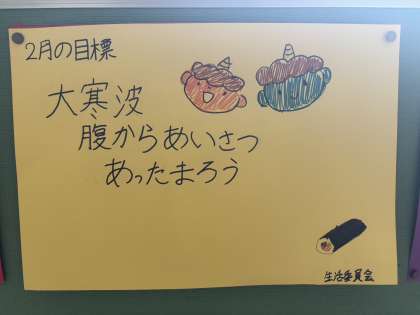 2月の目標
大寒波
腹からあいさつ
あったまろう
生活委員会